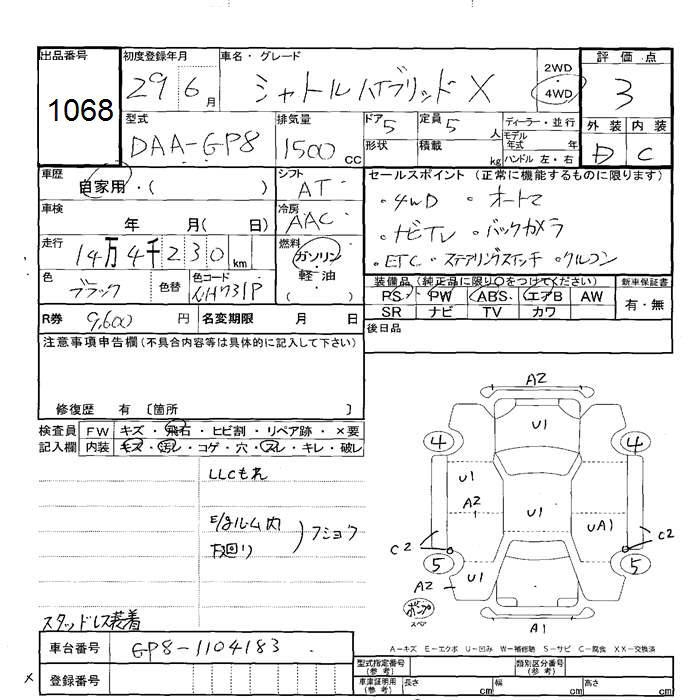 出品番号 初度登録年月 車名・グレード 2WD 評価点
1068 29 6月 シャトルハイブリッド X 4WD 3
型式 排気量 ドア 5 定員 5人 ディーラー・並行 外装 内装
DAA-GP8 1500cc 形状 積載 kg モデル年式 年 D C
ハンドル 左・右
車歴 シフト セールスポイント (正常に機能するものに限ります)
自家用・( ) AT ・4WD ・オートマ
車検 年 月( 日) 冷房 AAC ・ナビTV ・バックカメラ
走行 14万4千230km 燃料 ガソリン ・ETC ・ステアリングスイッチ ・クルコン
軽油
( )
色 ブラック 色替 色コード NH731P
装備品 (純正品に限り○をつけてください) 新車保証書
PS PW ABS エアB AW 有・無
SR ナビ TV カワ
R券 9,600円 名変期限 月 日 後日品
注意事項申告欄(不具合内容等は具体的に記入して下さい)
修復歴 有 〔箇所 〕
検査員 FW キズ・飛石・ヒビ割・リペア跡・×要
記入欄 内装 キズ・汚レ・コゲ・穴・スレ・キレ・破レ
LLCもれ
E/gルーム内
下廻り
フショク
スタッドレス装着
A2
U1
4 4
U1
A2 U1 UA1
C2 C2
5 5
A2 U1
ボンプ
スペア
A1
A-キズ E-エクボ U-凹み W-補修跡 S-サビ C-腐食 XX-交換済
車台番号 GP8-1104183
× 登録番号
型式指定番号(参考) 類別区分番号(参考)
車庫証明用(参考) 長さ cm 幅 cm 高さ cm